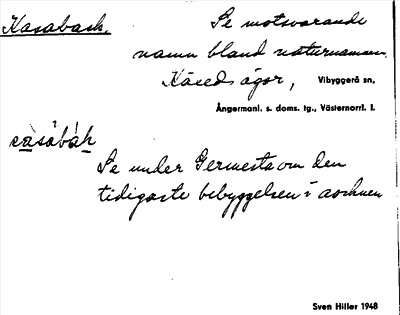 Kasaback.
Se motsvarande
namn bland naturnamnen.
Käxeds ägor, Vibyggerå sn,
Ångermanl. s. doms. tg., Västernorrl. l.
càsàbàk
Se under Germesta om den
tidigaste bebyggelsen i socknen
Sven Hiller 1948